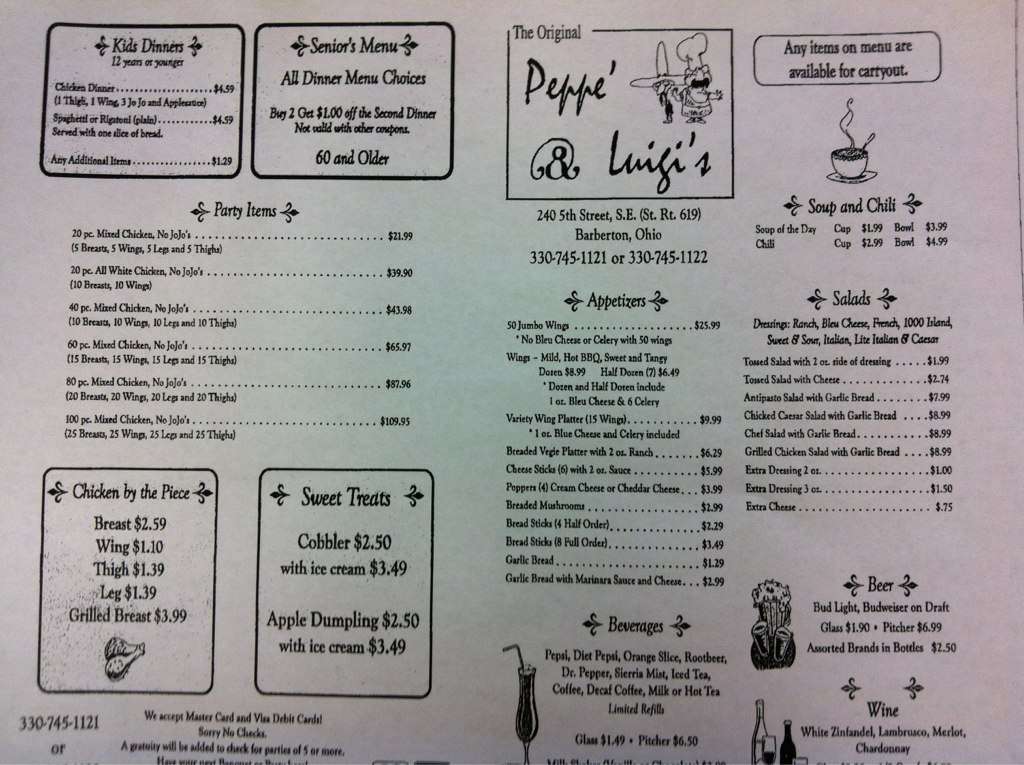 Kids Dinners
12 years or younger
Chicken Dinner..................$4.59
(1 Thigh, 1 Wing, 3 Jo Jo and Applesauce)
Spaghetti or Rigatoni (plain)............$4.59
Served with one slice of bread.
Any Additional Items.................$1.29
Senior's Menu
All Dinner Menu Choices
Buy 2 Get $1.00 off the Second Dinner
Not valid with other coupons.
60 and Older
Party Items
20 pc. Mixed Chicken, No JoJo's........................$21.99
(5 Breasts, 5 Wings, 5 Legs and 5 Thighs)
20 pc. All White Chicken, No JoJo's......................$39.90
(10 Breasts, 10 Wings)
40 pc. Mixed Chicken, No JoJo's........................$43.98
(10 Breasts, 10 Wings, 10 Legs and 10 Thighs)
60 pc. Mixed Chicken, No JoJo's........................$65.97
(15 Breasts, 15 Wings, 15 Legs and 15 Thighs)
80 pc. Mixed Chicken, No JoJo's........................$87.96
(20 Breasts, 20 Wings, 20 Legs and 20 Thighs)
100 pc. Mixed Chicken, No JoJo's......................$109.95
(25 Breasts, 25 Wings, 25 Legs and 25 Thighs)
Chicken by the Piece
Breast $2.59
Wing $1.10
Thigh $1.39
Leg $1.39
Grilled Breast $3.99
Sweet Treats
Cobbler $2.50
with ice cream $3.49
Apple Dumpling $2.50
with ice cream $3.49
330-745-1121
or
We accept Master Card and Visa Debit Cards!
Sorry No Checks.
A gratuity will be added to check for parties of 5 or more.
Have your next Banquet or
The Original
Peppé
& Luigi's
240 5th Street, S.E. (St. Rt. 619)
Barberton, Ohio
330-745-1121 or 330-745-1122
Appetizers
50 Jumbo Wings....................$25.99
* No Bleu Cheese or Celery with 50 wings
Wings - Mild, Hot BBQ, Sweet and Tangy
Dozen $8.99 Half Dozen (7) $6.49
* Dozen and Half Dozen include
1 oz. Bleu Cheese & 6 Celery
Variety Wing Platter (15 Wings)............$9.99
* 1 oz. Blue Cheese and Celery included
Breaded Vegie Platter with 2 oz. Ranch.......$6.29
Cheese Sticks (6) with 2 oz. Sauce..........$5.99
Poppers (4) Cream Cheese or Cheddar Cheese...$3.99
Breaded Mushrooms..................$2.99
Bread Sticks (4 Half Order)..............$2.29
Bread Sticks (8 Full Order)..............$3.49
Garlic Bread.......................$1.29
Garlic Bread with Marinara Sauce and Cheese...$2.99
Beverages
Pepsi, Diet Pepsi, Orange Slice, Rootbeer,
Dr. Pepper, Sierria Mist, Iced Tea,
Coffee, Decaf Coffee, Milk or Hot Tea
Limited Refills
Glass $1.49 • Pitcher $6.50
Any items on menu are
available for carryout.
Soup and Chili
Soup of the Day Cup $1.99 Bowl $3.99
Chili Cup $2.99 Bowl $4.99
Salads
Dressings: Ranch, Bleu Cheese, French, 1000 Island,
Sweet & Sour, Italian, Lite Italian & Caesar
Tossed Salad with 2 oz. side of dressing.....$1.99
Tossed Salad with Cheese............$2.74
Antipasto Salad with Garlic Bread........$7.99
Chicked Caesar Salad with Garlic Bread....$8.99
Chef Salad with Garlic Bread...........$8.99
Grilled Chicken Salad with Garlic Bread....$8.99
Extra Dressing 2 oz.................$1.00
Extra Dressing 3 oz.................$1.50
Extra Cheese.....................$.75
Beer
Bud Light, Budweiser on Draft
Glass $1.90 • Pitcher $6.99
Assorted Brands in Bottles $2.50
Wine
White Zinfandel, Lambrusco, Merlot,
Chardonnay